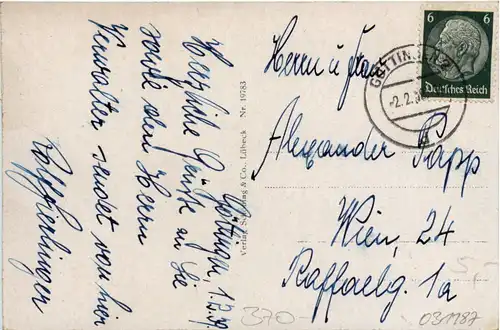 Göttingen, 1.2.39.
Herzliche Grüße an Sie
sowie den Herrn
Verwalter sendet von hier
Verlag Schöning & Co., Lübeck Nr. 19783
Herrn u. Frau
Alexander Papp
Wien, 24
Raffaelg. 1a
6 6
Deutsches Reich
2.2.
5,-
B70-
031187